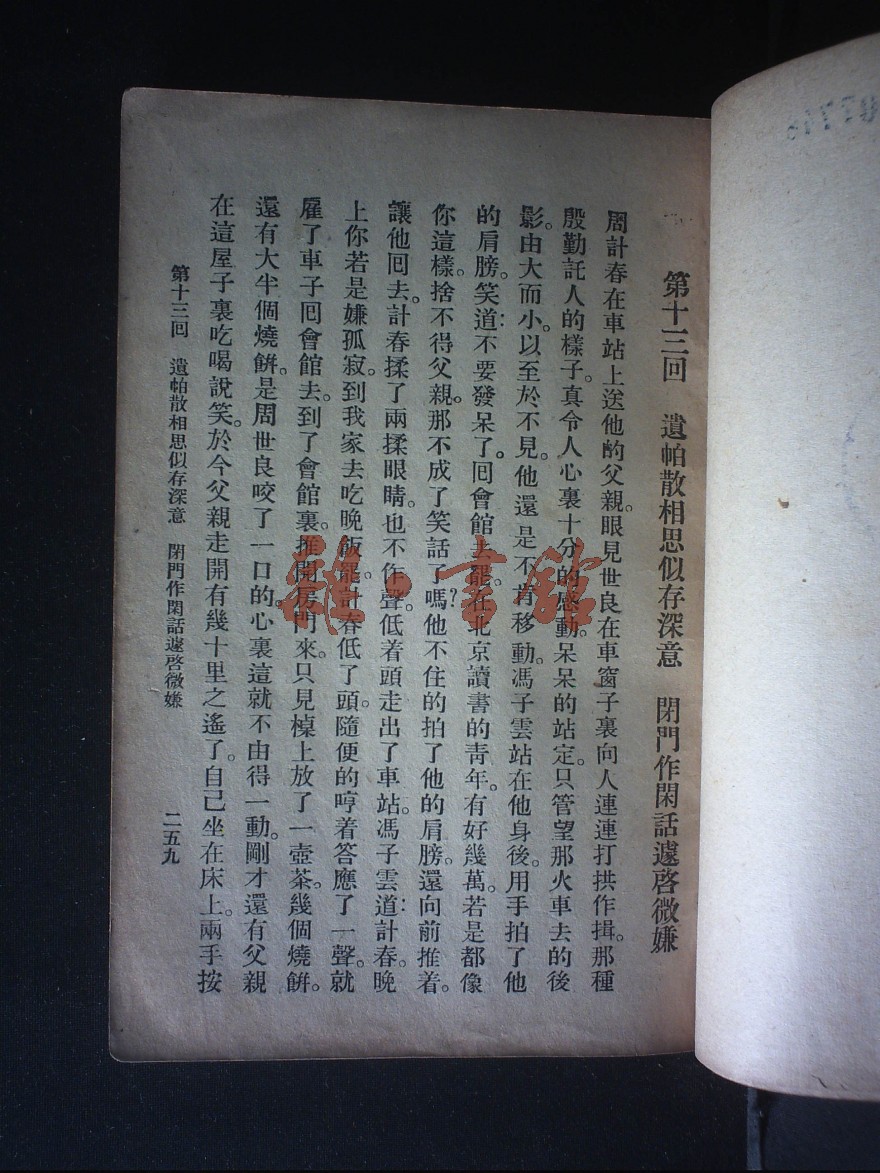 第十三回　遺帕散相思似存深意　閉門作閑話遽啓微嫌
周計春在車站上送他的父親。眼見世良在車窗子裏向人連連打拱作揖。那種
殷勤託人的樣子。真令人心裏十分的感動。呆呆的站定。只管望那火車去的後
影。由大而小。以至於不見。他還是不肯移動。馮子雲站在他身後。用手拍了他
的肩膀。笑道：不要發呆了。囘會館去罷。在北京讀書的靑年。有好幾萬。若是都像
你這樣。捨不得父親。那不成了笑話了嗎？他不住的拍了他的肩膀。還向前推着。
讓他囘去。計春揉了兩揉眼睛。也不作聲。低着頭走出了車站。馮子雲道：計春。晚
上你若是嫌孤寂。到我家去吃晚飯罷。計春低了頭。隨便的哼着答應了一聲。就
雇了車子囘會館去。到了會館裏。推開房門來。只見棹上放了一壺茶。幾個燒餅。
還有大半個燒餅。是周世良咬了一口的。心裏這就不由得一動。剛才還有父親
在這屋子裏吃喝說笑。於今父親走開有幾十里之遙了。自己坐在床上。兩手按
第十三回　遺帕散相思似存深意　閉門作閑話遽啓微嫌　二五九
雜書館